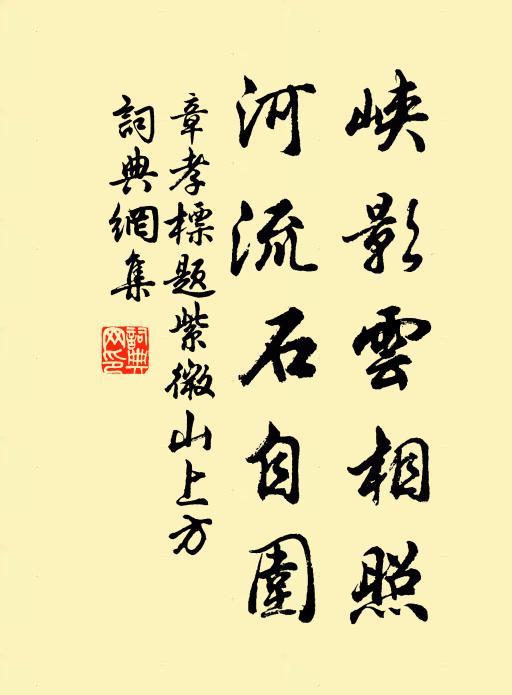 峽影雲相照
河流石自圍
章孝標題紫微山上方
詞典網集
詞典網印